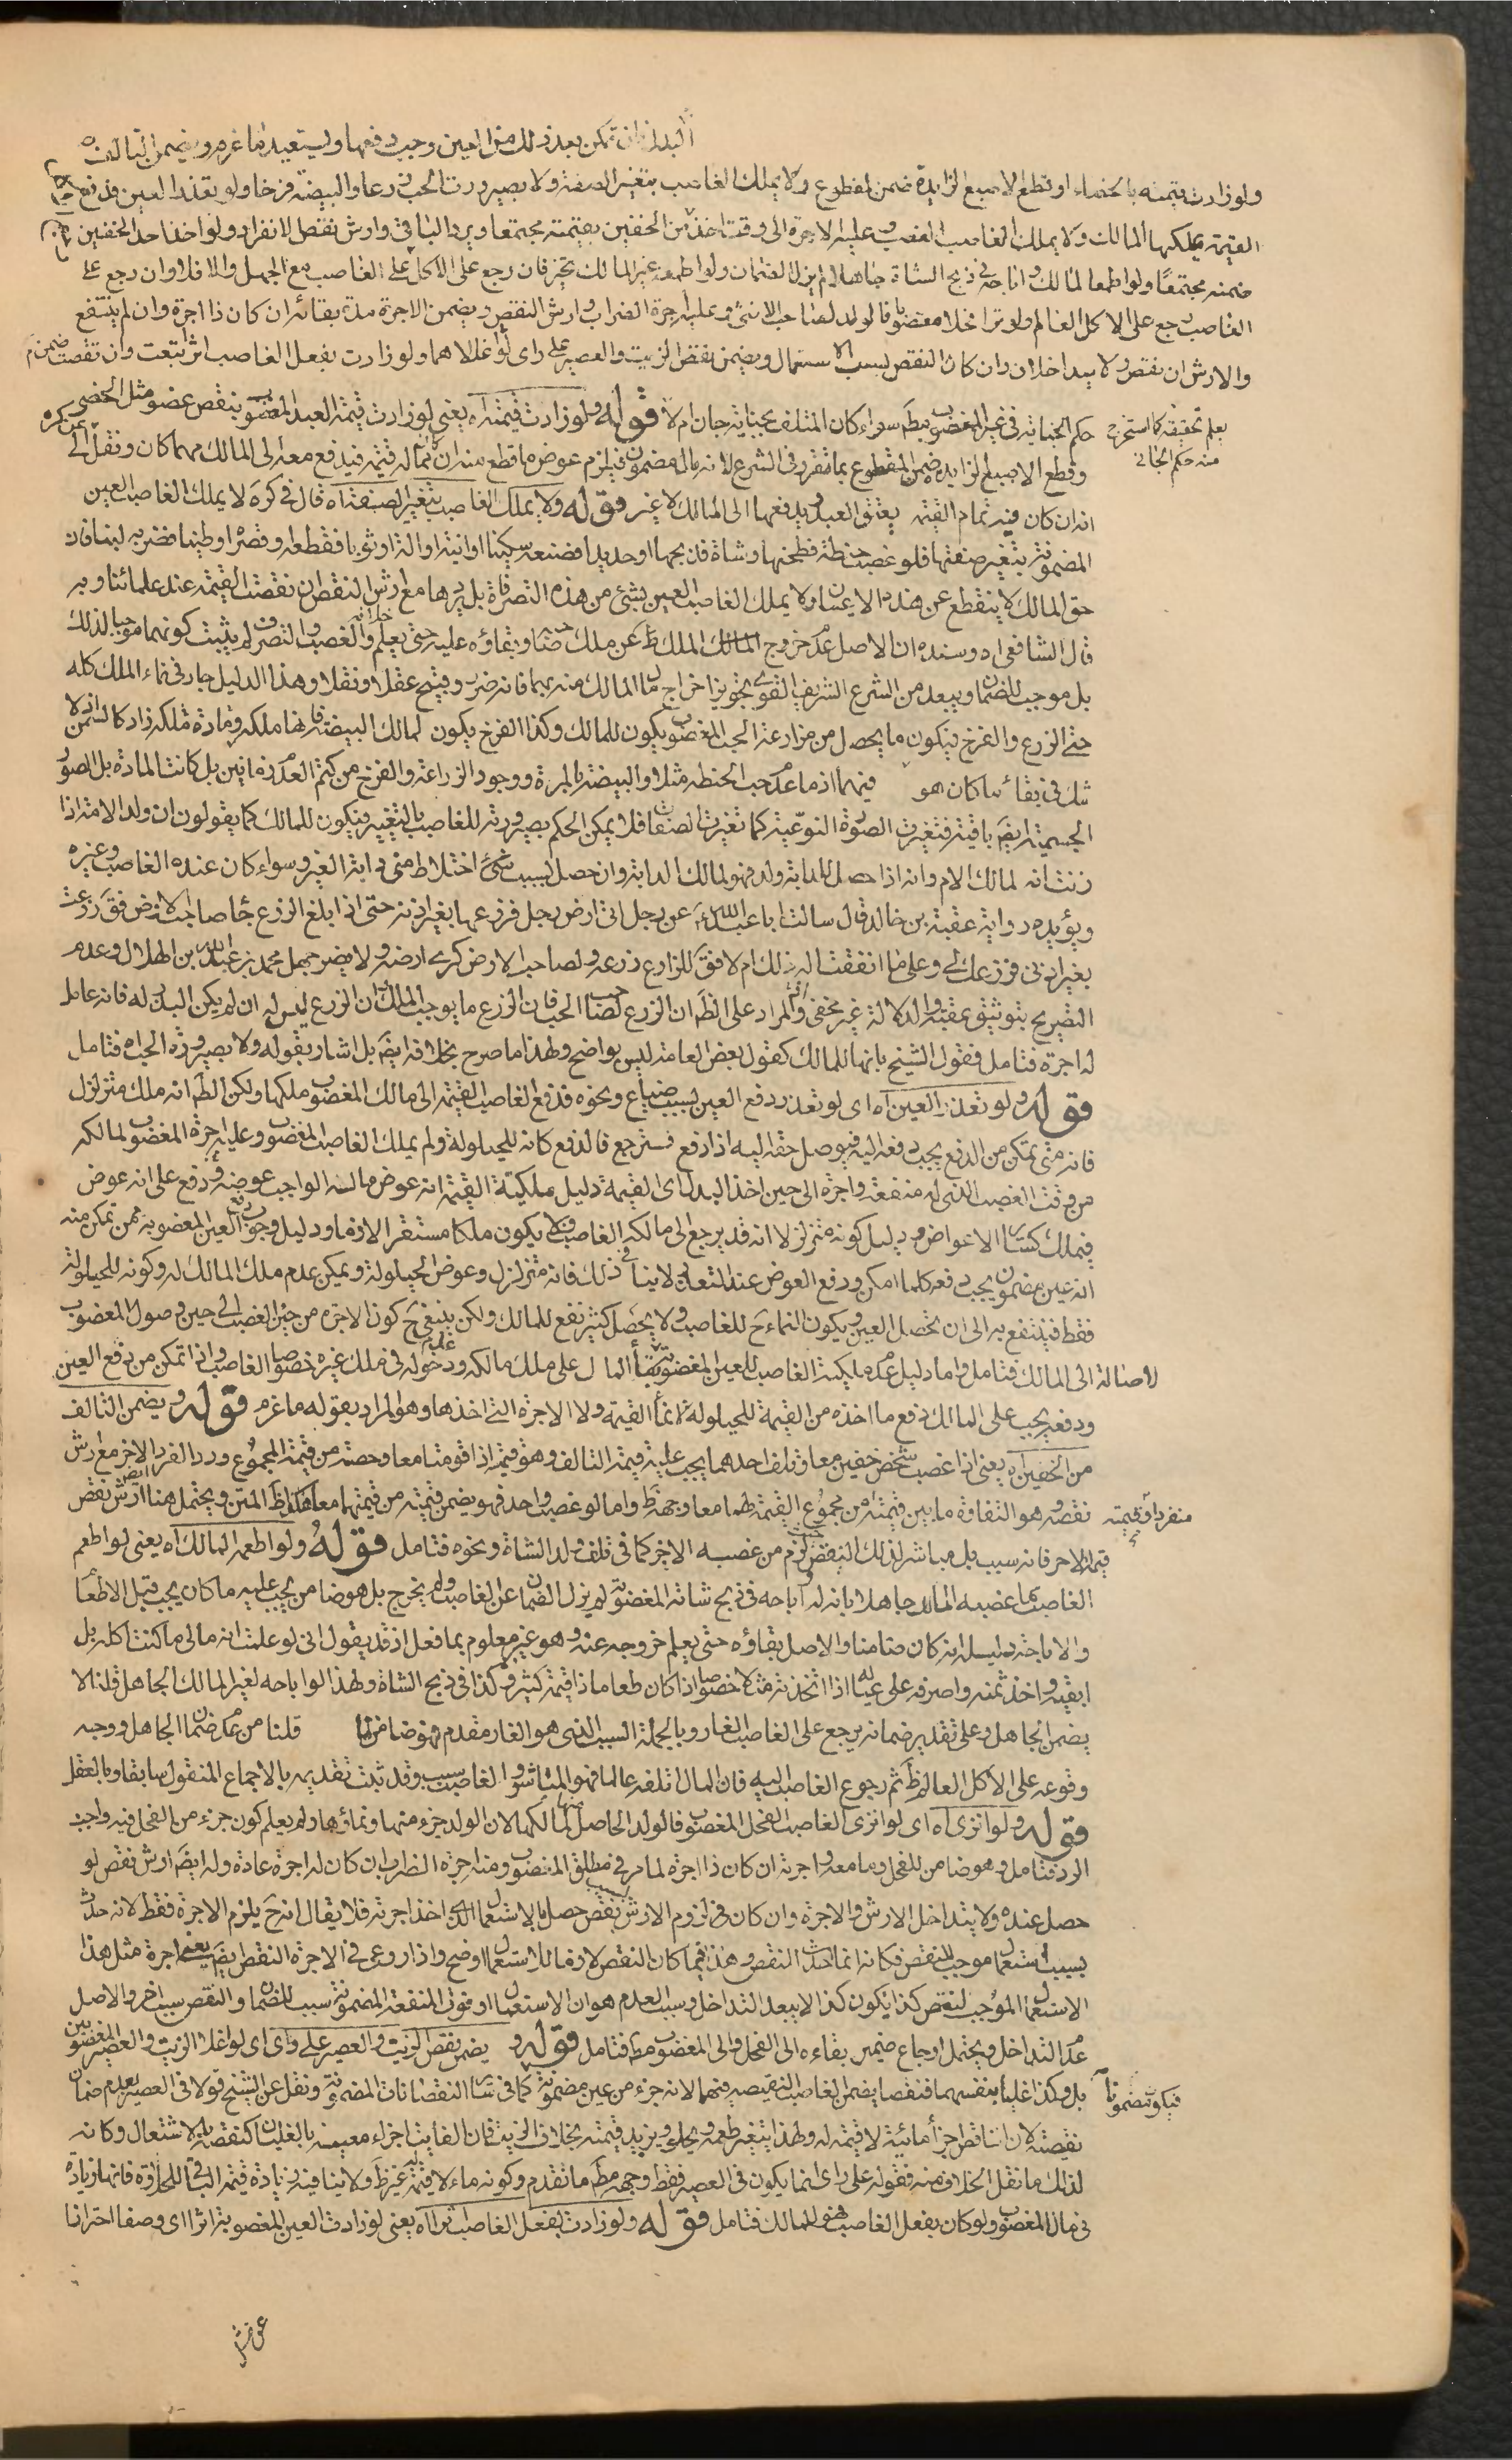 البدل فان تمكن بعد ذلك من العين وجب دفعها ويستعيد ما غرم ويضمن التالف
ولو زادت قيمته بالخصاء او قطع الاصبع الزايدة ضمن المقطوع ولا يملك الغاصب بتغير الصفة ولا بصيرورت الحب زرعا والبيضة فرخا ولو تعذر العين دفع
القيمة يملكها المالك ولا يملك الغاصب المغصوب وعليه الاجرة الى وقت اخذ من الخفين بقيمته مجتمعا ويرد الباقي وارش نقص الانفراد ولو اخذ احد الخفين
ضمنه مجتمعا ولو اطعم المالك او اباحه في ذبح الشاة جاهلا لم يزل الضمان ولو اطعمه غير المالك تخير فان رجع على الاكل رجع على الغاصب مع الجهل والا فلا وان رجع على
الغاصب رجع على الاكل العالم ولو نزا فحلا مغصوبا فالولد لصاحب الانثى وعليه اجرة الضراب وارش النقص ويضمن الاجرة مدة بقائه ان كان ذا اجرة وان لم ينتفع
والارش ان نقص ولا يتداخلان وان كان النقص بسبب الاستعمال ويضمن نقص الزيت والعصير على راى لو اغلاهما ولو زادت بفعل الغاصب اثرا تبعت وان نقصت ضمن
حكم الجناية في غير المغصوب مط سواء كان المتلف بجناية جان ام لا قوله ولو زادت قيمته اه يعني لو زادت قيمة العبد المغصوب بنقص عضو مثل الخصى
يعلم تحقيقه كما استخرج
منه حكم الجاني
وقطع الاصبع الزايدة ضمن المقطوع بما تقرر في الشرع لانه مال مضمون فيلزم عوض ما قطع منه ان كان له قيمة فيدفع معه الى المالك مهما كان ونقل
انه ان كان فيه تمام القيمة يعتق العبد ويدفعها الى المالك لا غير قوله ولا يملك الغاصب بتغير الصفة اه قال في كره لا يملك الغاصب العين
المضمونة بتغير صفتها فلو غصب حنطة فطحنها وشاة فذبحها او حديدا فصنعه سكينا او آنية او آلة او ثوبا فقطعه وقصره او طينا فضربه لبنا فان
حق المالك لا ينقطع عن هذه الاعيان ولا يملك الغاصب العين بشئ من هذه التصرفات بل يردها مع ارش النقص ان نقصت القيمة عند علمائنا وبه
قال الشافعي اه وسنده ان الاصل عدم خروج الملك عن ملك صاحبه وبقاؤه عليه حتى يعلم والغصب والتصرف لم يثبت كونهما موجبا لذلك
بل موجب للضمان ويبعد من الشرع الشريف القوى تجويز اخراج مال المالك منه بهما فانه ضرر وقبيح عقلا ونقلا وهذا الدليل جار في نماء الملك كله
حتى الزرع والفرخ فيكون ما يحصل من مزارعة الحب المغصوب يكون للمالك وكذا الفرخ يكون لمالك البيضة فانها ملكه ومادة ملكه زاد كالسمن
شك في بقائه ما كان هو فيهما اذ ما عدم حب الحنطة مثلا والبيضة بالمرة ووجود الزراعة والفرخ من كتم العدم زمانين بل كانت المادة بل الصورة
الجسمية ايضا باقية فتغيرت الصورة النوعية كما تغيرت الصفات فلا يمكن الحكم بصيرورته للغاصب بالتغيير فيكون للمالك كما يقولون ان ولد الامة اذا
زنت انه لمالك الام وانه اذا حصل للدابة ولد فهو لمالك الدابة وان حصل بسبب شئ اختلاط مني دابة الغير وسواء كان عنده الغاصب وغيره
ويؤيده رواية عقبة بن خالد قال سالت ابا عبد الله عن رجل اتى ارض رجل فزرعها بغير اذنه حتى اذا بلغ الزرع جاء صاحب الارض فقال زرعت
بغير اذني فزرعك لي وعلى ما انفقت اله ذلك ام لا فقال للزارع زرعه ولصاحب الارض كرى ارضه ولا يضر جهل محمد بن عبد الله بن الهلال وعدم
التصريح بتوثيق عقبة والدلالة غير مخفى والمراد على الظ ان الزرع لصاحب الحب فان الزرع ما يوجب الملك ان الزرع ليس له ان لم يكن البذر له فانه عامل
له اجرة فتامل فقول الشيخ بانها للمالك كقول بعض العامة ليس بواضح ولهذا ما صرح بخلافه ايضا بل اشار بقوله ولا بصيرورة الحب اه فتامل
قوله ولو تعذر العين اه اى لو تعذر دفع العين بسبب ضياع ونحوه فدفع الغاصب القيمة الى مالك المغصوب ملكها ولكن الظ انه ملك متزلزل
فانه متى تمكن من الدفع يجب دفعه اليه فيوصل حقه اليه اذا دفع فسترجع فالدفع كانه للحيلولة ولم يملك الغاصب المغصوب وعليه اجرة المغصوب لمالكه
من وقت الغصب الذي له منفعة واجرة الى حين اخذ البدل اى القيمة دليل ملكية القيمة انه عوض ماله الواجب عوضه ودفع على انه عوض
فيملك كساير الاعواض ودليل كونه متزلزلا انه قد يرجع الى مالكه الغاصب فلا يكون ملكا مستقرا لازما ودليل وجوب دفع العين المغصوبة ممن تمكن منه
انه عين مضمون يجب دفعه كلما امكن ودفع العوض عند التعذر لا ينافي ذلك فانه متزلزل وعوض الحيلولة ويمكن عدم ملك المالك له وكونه للحيلولة
فقط فينتفع به الى ان تحصل العين ويكون النماء ح للغاصب ولا يحصل كثير نفع للمالك ولكن ينبغي ح كون الاجرة من حين الغصب الى حين وصول المغصوب
لاصالة الى المالك فتامل واما دليل عدم ملكية الغاصب للعين المغصوبة بقاء المال على ملك مالكه وعدم دخوله في ملك غيره خصوصا الغاصب واذا تمكن من دفع العين
ودفعه يجب على المالك دفع ما اخذه من القيمة للحيلولة لا نماء القيمة ولا الاجرة التي اخذها وهو المراد بقوله ما غرم قوله ويضمن التالف
من الخفين اه يعني اذا غصب شخص خفين معا وتلف احدهما يجب عليه قيمة التالف وهو قيمته اذا قومتا معا وحصته من قيمة المجموع ورد الفرد الاخر مع ارش
نقصه وهو التفاوت ما بين قيمته من مجموع القيمة لهما معا وجهه ظ واما لو غصب واحد فهو يضمن قيمته من قيمتهما معا هكذا ظ المتن ويحتمل هنا ارش نقص
منفردا وقيمته
قيمة الاخر فانه سبب بل مباشر لذلك النقص لزم من غصبه الاخر كما في تلف ولد الشاة ونحوه فتامل قوله ولو اطعمه المالك اه يعني لو اطعم
الغاصب ما غصبه المالك جاهلا بانه له او اباحه في ذبح شاته المغصوبة لم يزل الضمان عن الغاصب ولم يخرج بل هو ضامن يجب عليه ما كان يجب قبل الاطعام
والاباحة دليله انه كان ضامنا والاصل بقاؤه حتى يعلم خروجه عنه وهو غير معلوم بما فعل اذ قد يقول اني لو علمت انه مالي ما كنت آكله بل
ابقيه واخذ ثمنه واصرفه على عيالي اذا اتخذته مثلا خصوصا اذا كان طعاما ذا قيمة كثيرة وكذا في ذبح الشاة ولهذا لو اباحه لغير المالك الجاهل قلنا لا
يضمن الجاهل وعلى تقدير ضمانه يرجع على الغاصب الغار وبالجملة السبب الذي هو الغار مقدم فهو ضامن قلنا من عدم ضمان الجاهل ووجه
وقوعه على الاكل العالم ظ ثم رجوع الغاصب اليه فان المال اتلفه عالما فهو المباشر والغاصب سبب وقد ثبت تقديمه بالاجماع المنقول سابقا وبالعقل
قوله ولو انزى اه اى لو انزى الغاصب الفحل المغصوب فالولد الحاصل لمالكها لان الولد جزء منها ونماؤها ولم يعلم كون جزء من الفحل فيه واجب
الرد فتامل وهو ضامن للفحل وما معه واجرته ان كان ذا اجرة لما مر في مطلق المغصوب ومنه اجرة الضراب ان كان له اجرة عادة وله ايضا ارش نقص لو
حصل عنده ولا يتداخل الارش والاجرة وان كان في لزوم الارش بسبب نقص حصل بالاستعمال الذي اخذ اجرته فلا يقال انه ح يلزم الاجرة فقط لانه حدث
بسبب استعمال موجب للنقص فكانه انما اخذت النقص وهذا فيما كان النقص لازما للاستعمال اوضح واذا روعى في الاجرة النقص ايضا يعني اجرة مثل هذا
الاستعمال الموجب لنقص كذا يكون كذا لا يبعد التداخل وسبب العدم هو ان الاستعمال او فوت المنفعة المضمونة سبب للضمان والنقص سبب اخر والاصل
عدم التداخل ويحتمل ارجاع ضمير بقاءه الى الفحل والى المغصوب مط فتامل قوله ويضمن نقص الزيت والعصير على راى اى لو اغلا الزيت والعصير المغصوبين
فيكون مضمونا
بل وكذا غليا بنفسهما فنقصا يضمن الغاصب النقيصة فيهما لانه جزء من عين مضمونة كما في ساير النقصانات المضمونة ونقل عن الشيخ قولا في العصير بعدم ضمان
نقيصته لان الناقص اجزاء مائية لا قيمة له ولهذا يتغير طعمه ويحلو ويزيد قيمته بخلاف الزيت فان الفايت اجزاء معينة بالغليان كنقصه بالاشتعال وكانه
لذلك ما نقل الخلاف منه فقوله على راى انما يكون في العصير فقط وجهه مط ما تقدم وكونه ماء لا قيمة له غير ظ ولا ينافيه زيادة قيمة الباقي للحلاوة فانها زيادة
في مال المغصوب ولو كان بفعل الغاصب فهي للمالك فتامل قوله ولو زادت بفعل الغاصب اثرا اه يعني لو زادت العين المغصوبة اثرا اى وصفا احترازا